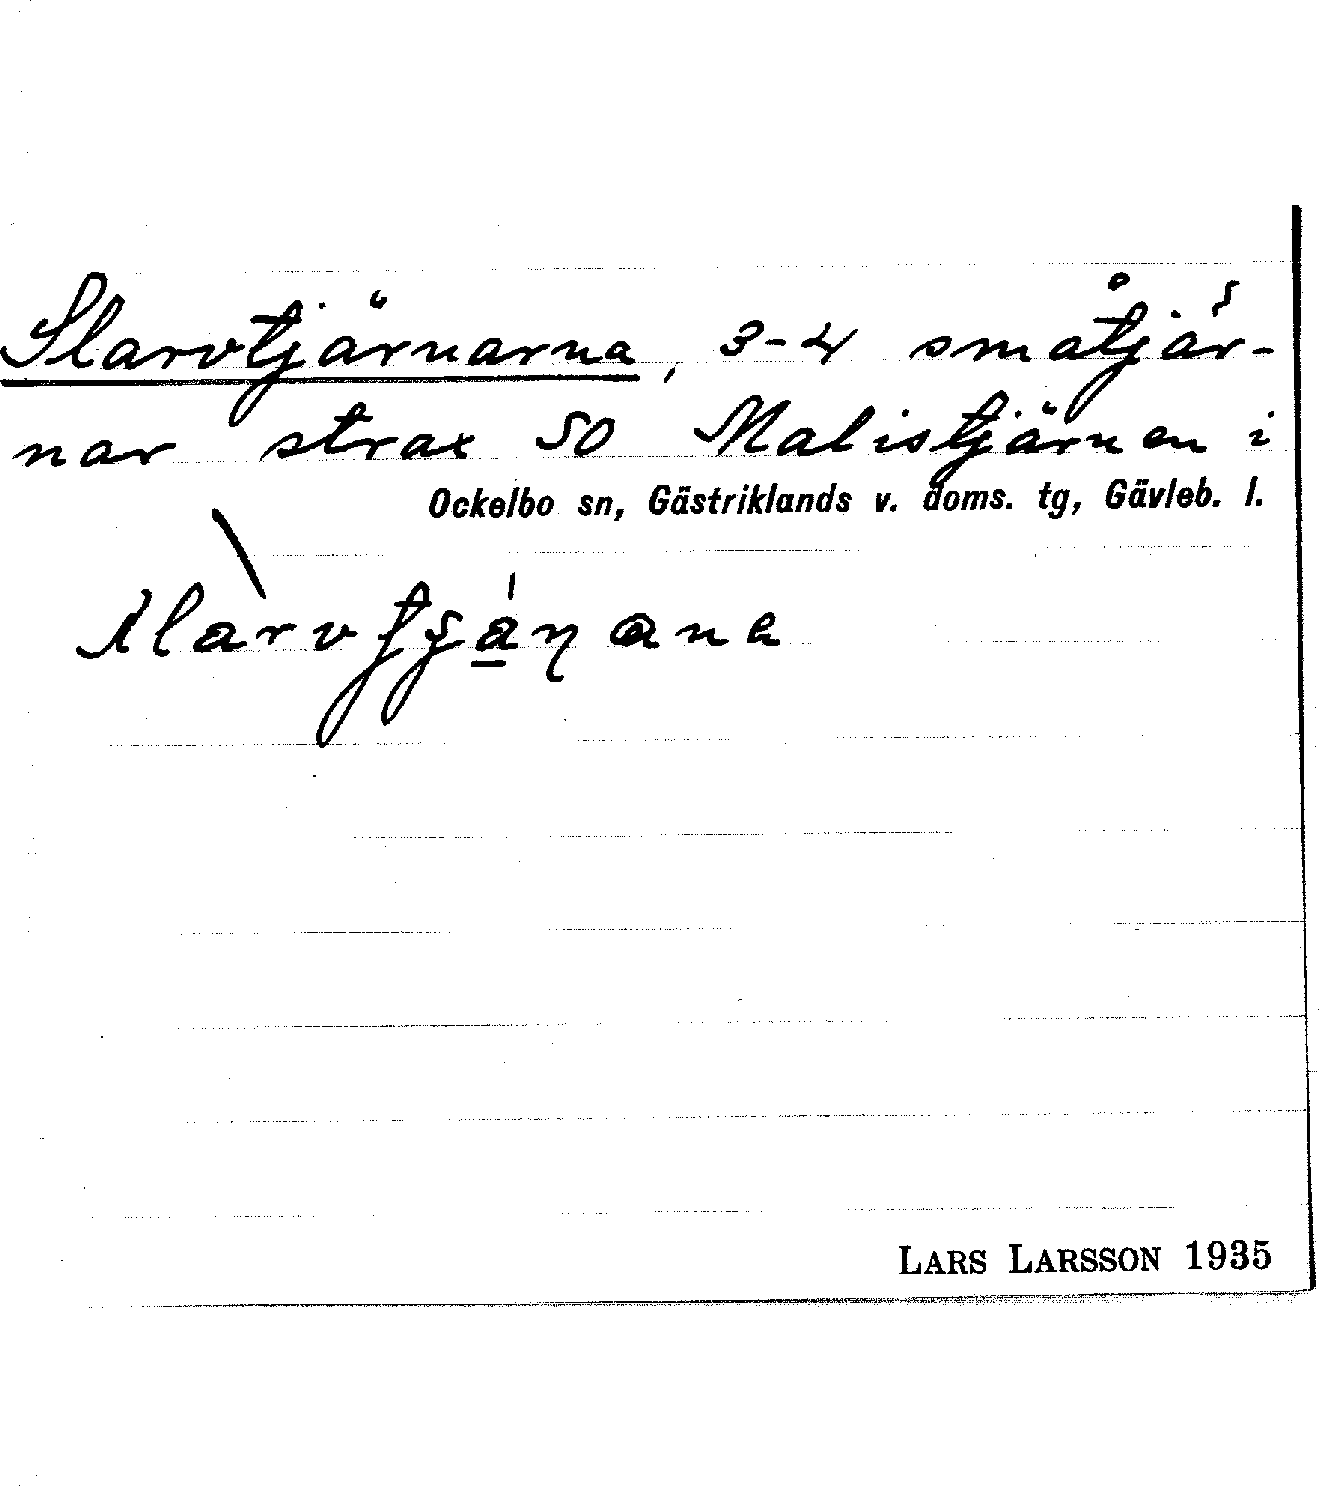 Slarvtjärnarna, 3-4 småtjär-
nar strax SO Malistjärnen i
Ockelbo sn, Gästriklands v. doms. tg, Gävleb. l.
LARS LARSSON 1935